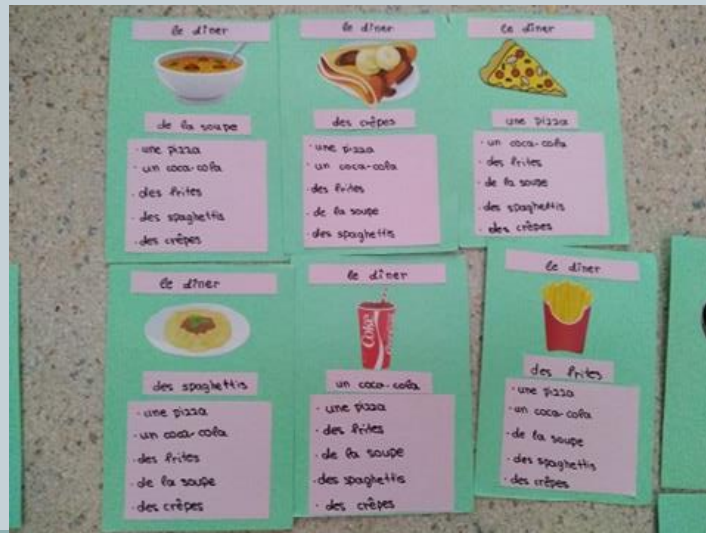 le dîner
de la soupe
· une pizza
· un coca-cola
· des frites
· des spaghettis
· des crêpes
le dîner
des crêpes
· une pizza
· un coca-cola
· des frites
· de la soupe
· des spaghettis
le dîner
une pizza
· un coca-cola
· des frites
· de la soupe
· des spaghettis
· des crêpes
le dîner
des spaghettis
· une pizza
· un coca-cola
· des frites
· de la soupe
· des crêpes
le dîner
Coke
un coca-cola
· une pizza
· des frites
· de la soupe
· des spaghettis
· des crêpes
le dîner
des frites
· une pizza
· un coca-cola
· de la soupe
· des spaghettis
· des crêpes